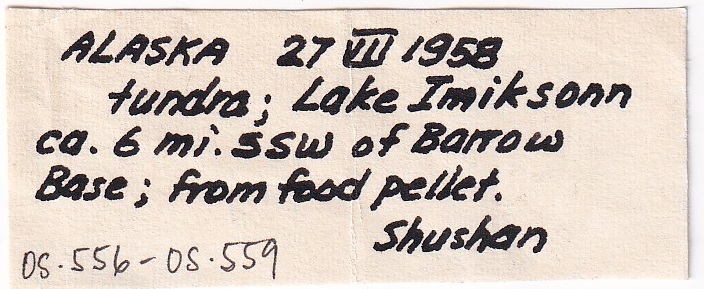 ALASKA 27 VII 1958
tundra; Lake Imiksonn
ca. 6 mi. SSW of Barrow
Base; from food pellet.
Shushan
OS.556-OS.559